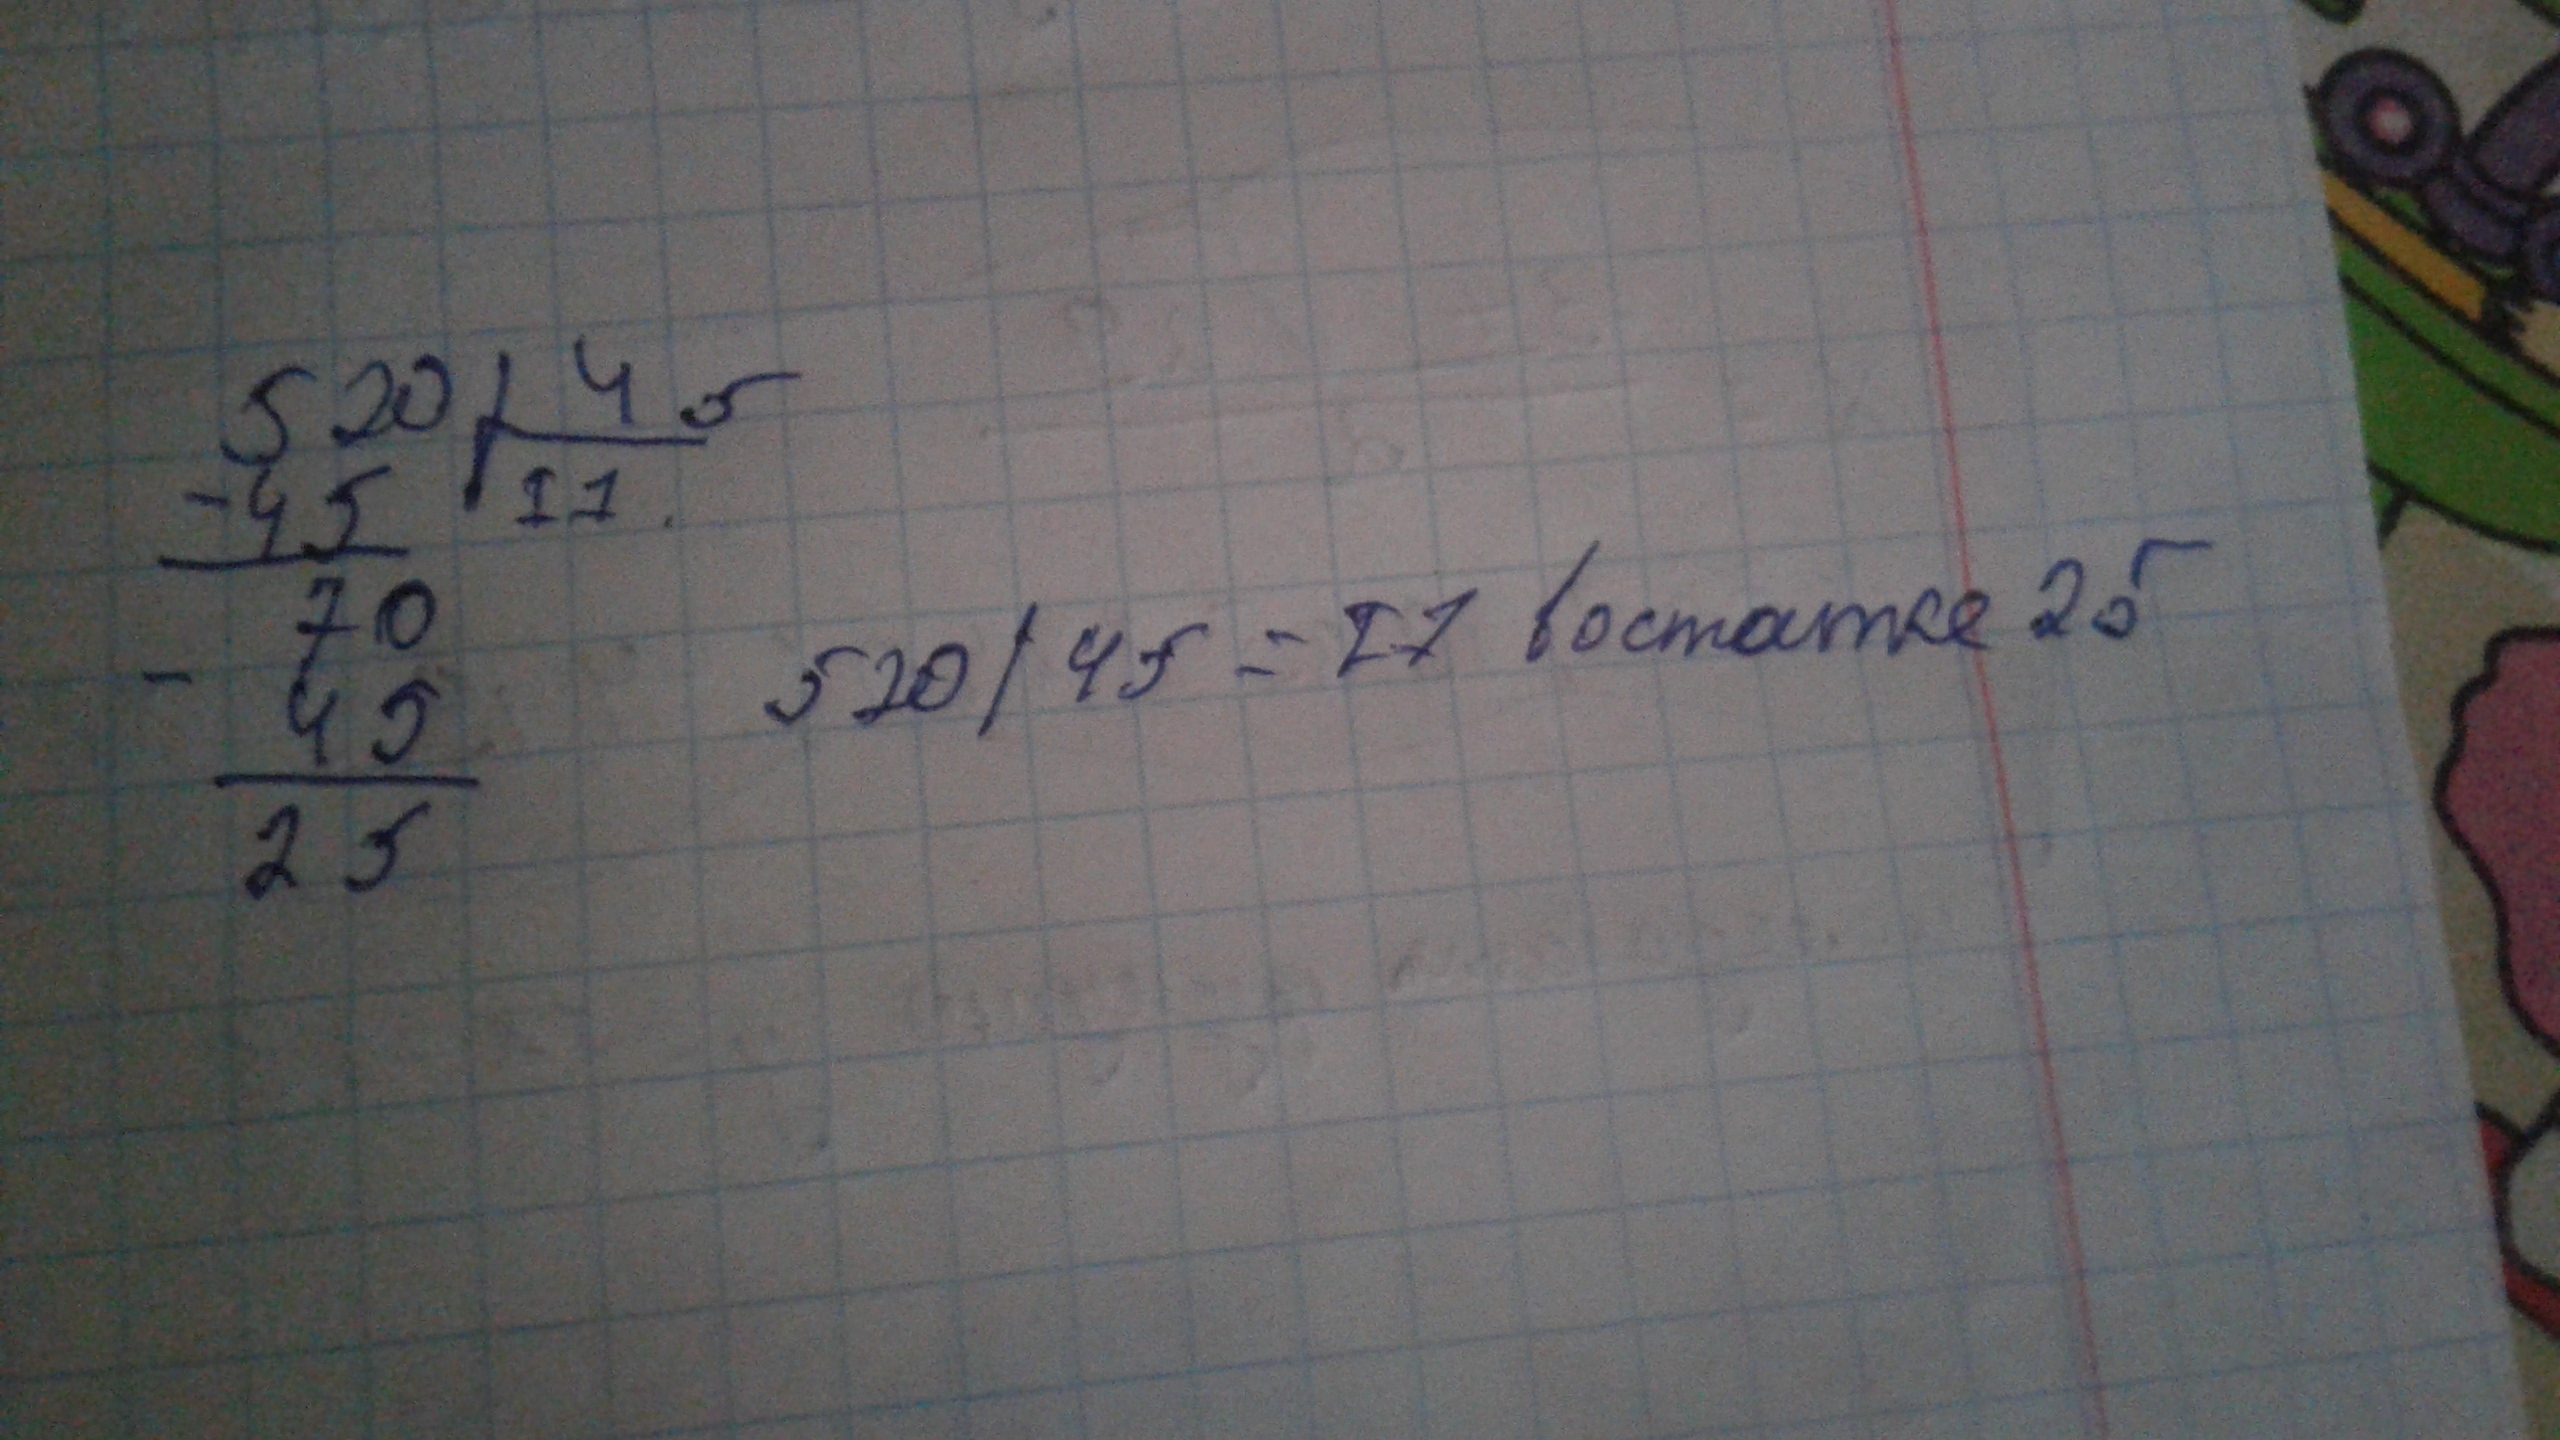 520 45
-45 11
70
- 45
25
520/45=11 востатке 25